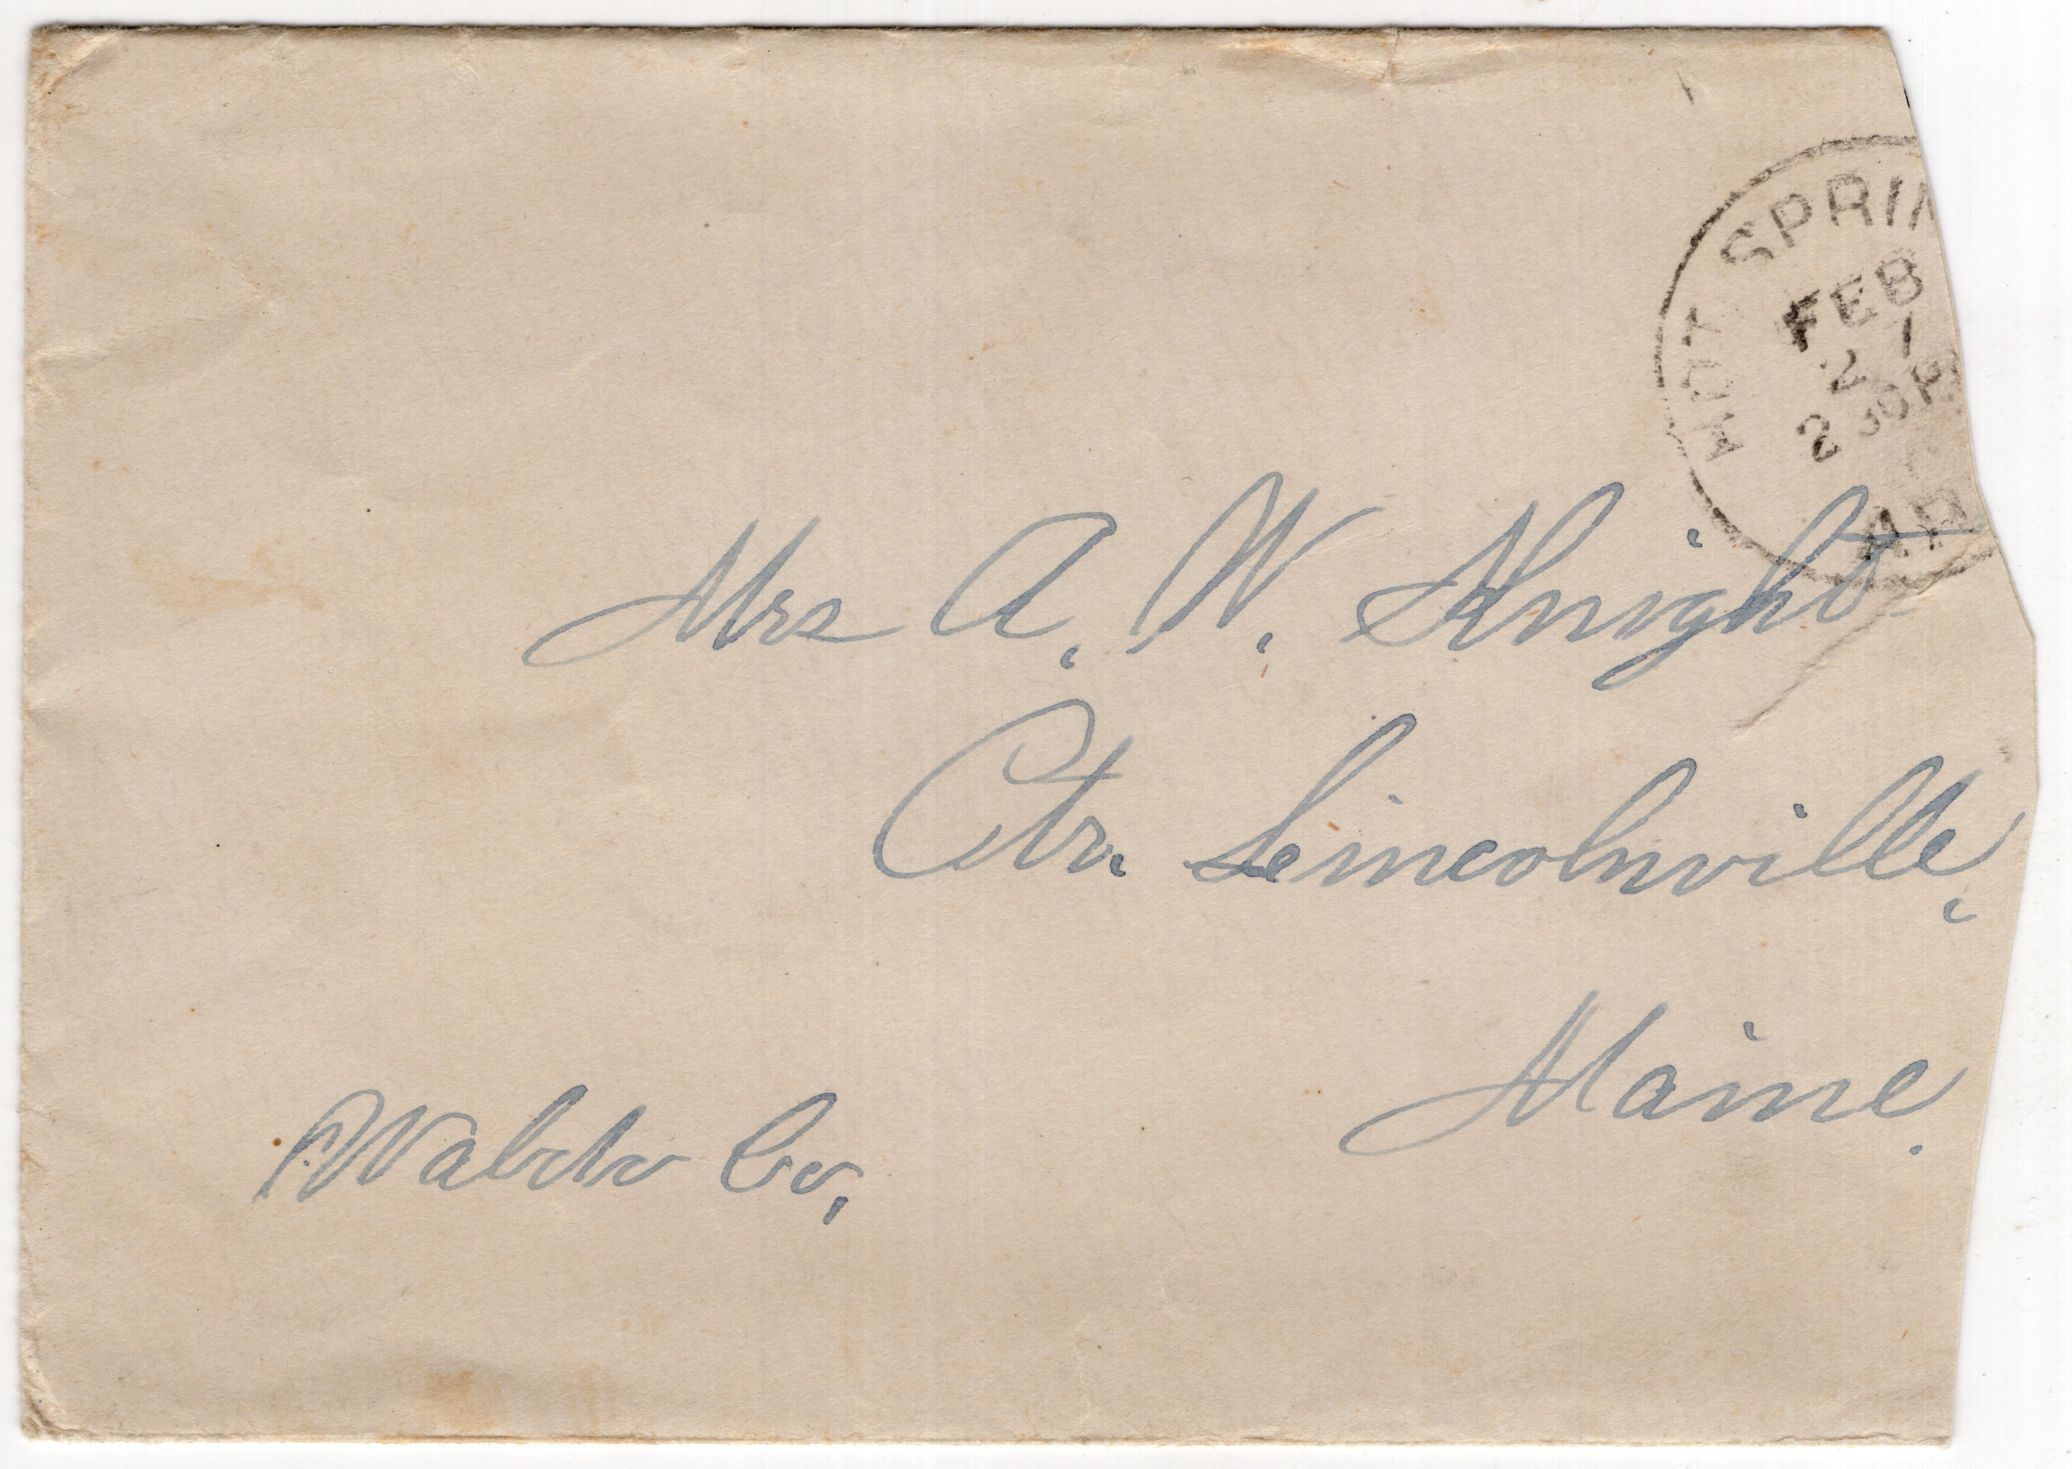 HOT SPRIN
FEB
21
2 30 P
AR
Mrs A. W. Knight
Ctr. Lincolnville,
Maine.
Waldo Co,